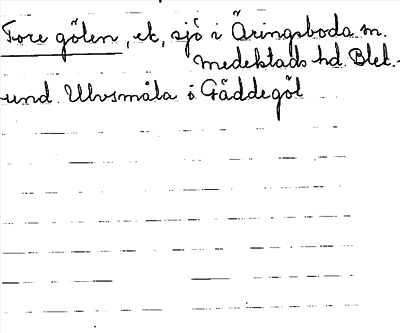 Tore gölen, et, sjö i Äringsboda sn.
medelstads hd. Blek.
und. Ulvsmåla ö Gäddegöl